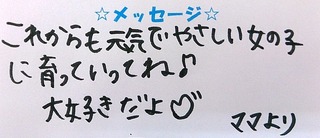 ☆メッセージ☆
これからも元気でやさしい女の子
に育っていってね♪
大好きだよ♡
ママより